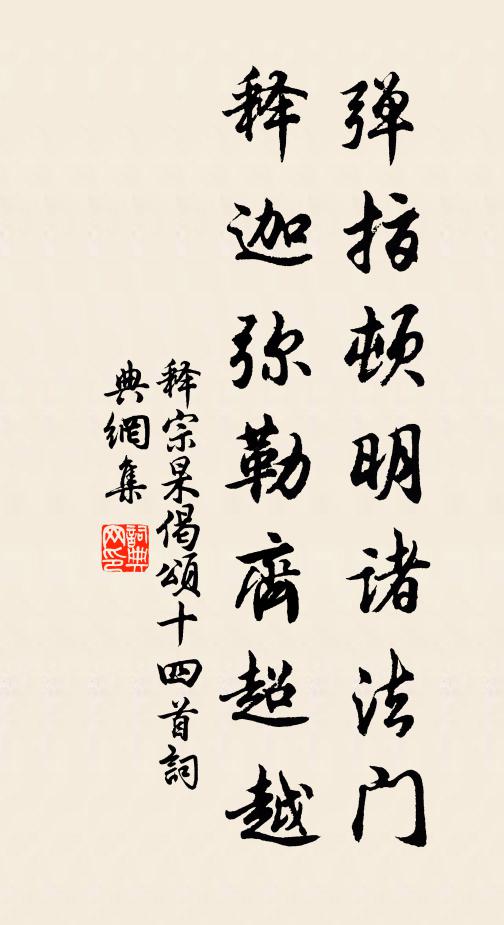 弹指顿明诸法门
释迦弥勒齊超越
释宗杲偈頌十四首詞
典網集
詞典網印